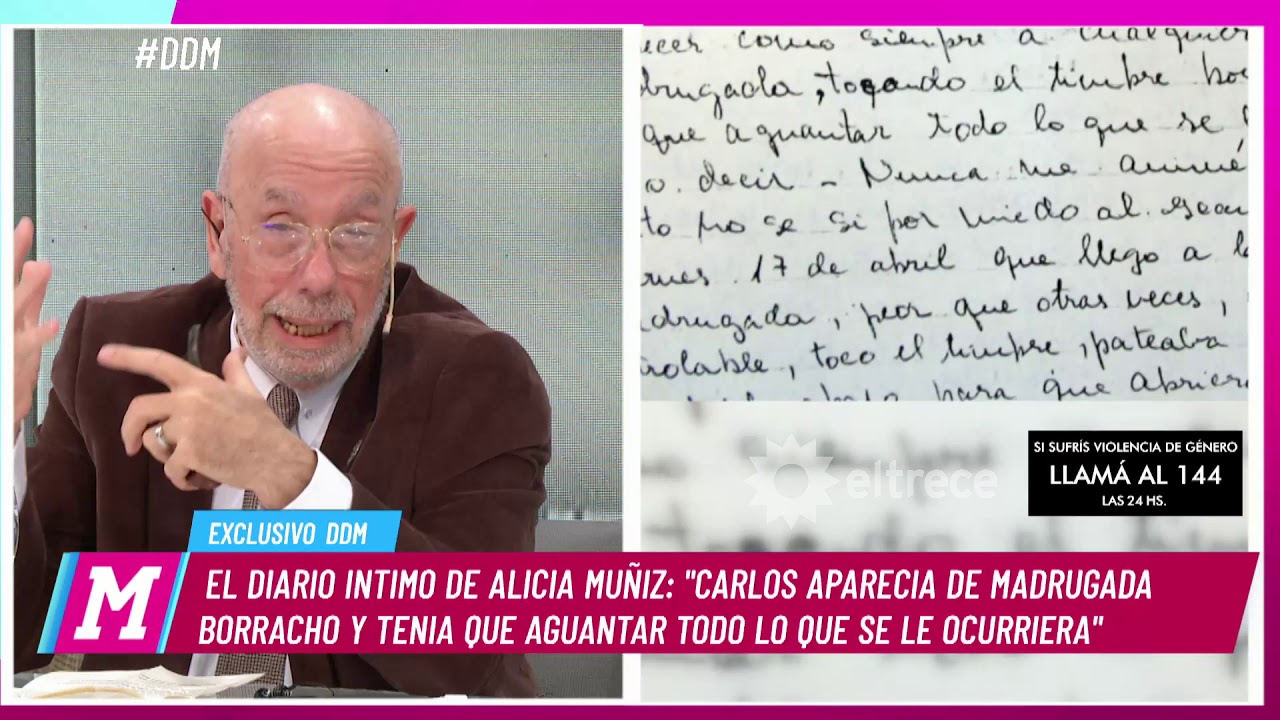 #DDM
como siempre a cualquier
, tocando el timbre
que aguantar todo lo que se
decir - Nunca me animé
no se si por miedo al
17 de abril que llego a
, peor que otras veces,
, toco el timbre, pateaba
para que abriera
eltrece
SI SUFRÍS VIOLENCIA DE GÉNERO
LLAMÁ AL 144
LAS 24 HS.
EXCLUSIVO DDM
M
EL DIARIO INTIMO DE ALICIA MUÑIZ: "CARLOS APARECIA DE MADRUGADA
BORRACHO Y TENIA QUE AGUANTAR TODO LO QUE SE LE OCURRIERA"